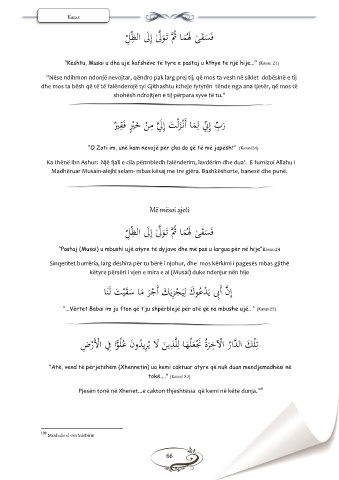 Kasas
فَسَقَىٰ لَهُمَا ثُمَّ تَوَلَّىٰ إِلَى الظِّلِّ
"Kështu, Musai u dha ujë kafshëve të tyre e pastaj u kthye te një hije..." (Kasas 24)
"Nëse ndihmon ndonjë nevojtar, qëndro pak larg prej tij, që mos ta vesh në siklet dobësinë e tij
dhe mos ta bësh që të të falënderojë ty! Gjithashtu ktheje fytyrën tënde nga ana tjetër, që mos të
shohësh ndrojtjen e tij përpara syve të tu."
رَبِّ إِنِّي لِمَا أَنْزَلْتَ إِلَيَّ مِنْ خَيْرٍ فَقِيرٌ
"O Zoti im, unë kam nevojë për çka do që të më japësh!" (Kasas24)
Ka thënë ibn Ashur: Një fjali e cila përmbledh falënderim, lavdërim dhe dua'. E furnizoi Allahu i
Madhëruar Musain-alejhi selam- mbas kësaj me tre gjëra. Bashkëshorte, banesë dhe punë.
Më mësoi ajeti
فَسَقَىٰ لَهُمَا ثُمَّ تَوَلَّىٰ إِلَى الظِّلِّ
"Pastaj (Musai) u mbushi ujë atyre të dyjave dhe më pas u largua për në hije"Kasas24
Sinqeritet burrëria, larg dëshira për tu bërë i njohur, dhe mos kërkimi i pagesës mbas gjithë
këtyre përsëri i vjen e mira e al (Musai) duke ndenjur nën hije
إِنَّ أَبِي يَدْعُوكَ لِيَجْزِيَكَ أَجْرَ مَا سَقَيْتَ لَنَا
"...Vërtet Babai im ju fton që t'ju shpërblejë për atë që na mbushe ujë.." (Kasas 25)
تِلْكَ الدَّارُ الْآخِرَةُ نَجْعَلُهَا لِلَّذِينَ لَا يُرِيدُونَ عُلُوًّا فِي الْأَرْضِ
"Atë, vend të përjetshëm (Xhennetin) ua kemi caktuar atyre që nuk duan mendjemadhësi në
tokë..." (Kasas 83)
Pjesën tonë në Xhenet...e cakton thjeshtësia që kemi në këtë dunja."
el-mutedebbirin
66